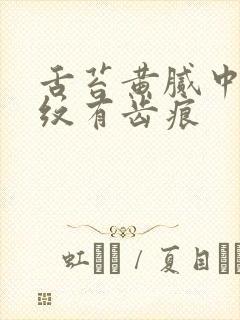 舌苔黄腻中
纹有齿痕
虹 / 夏目